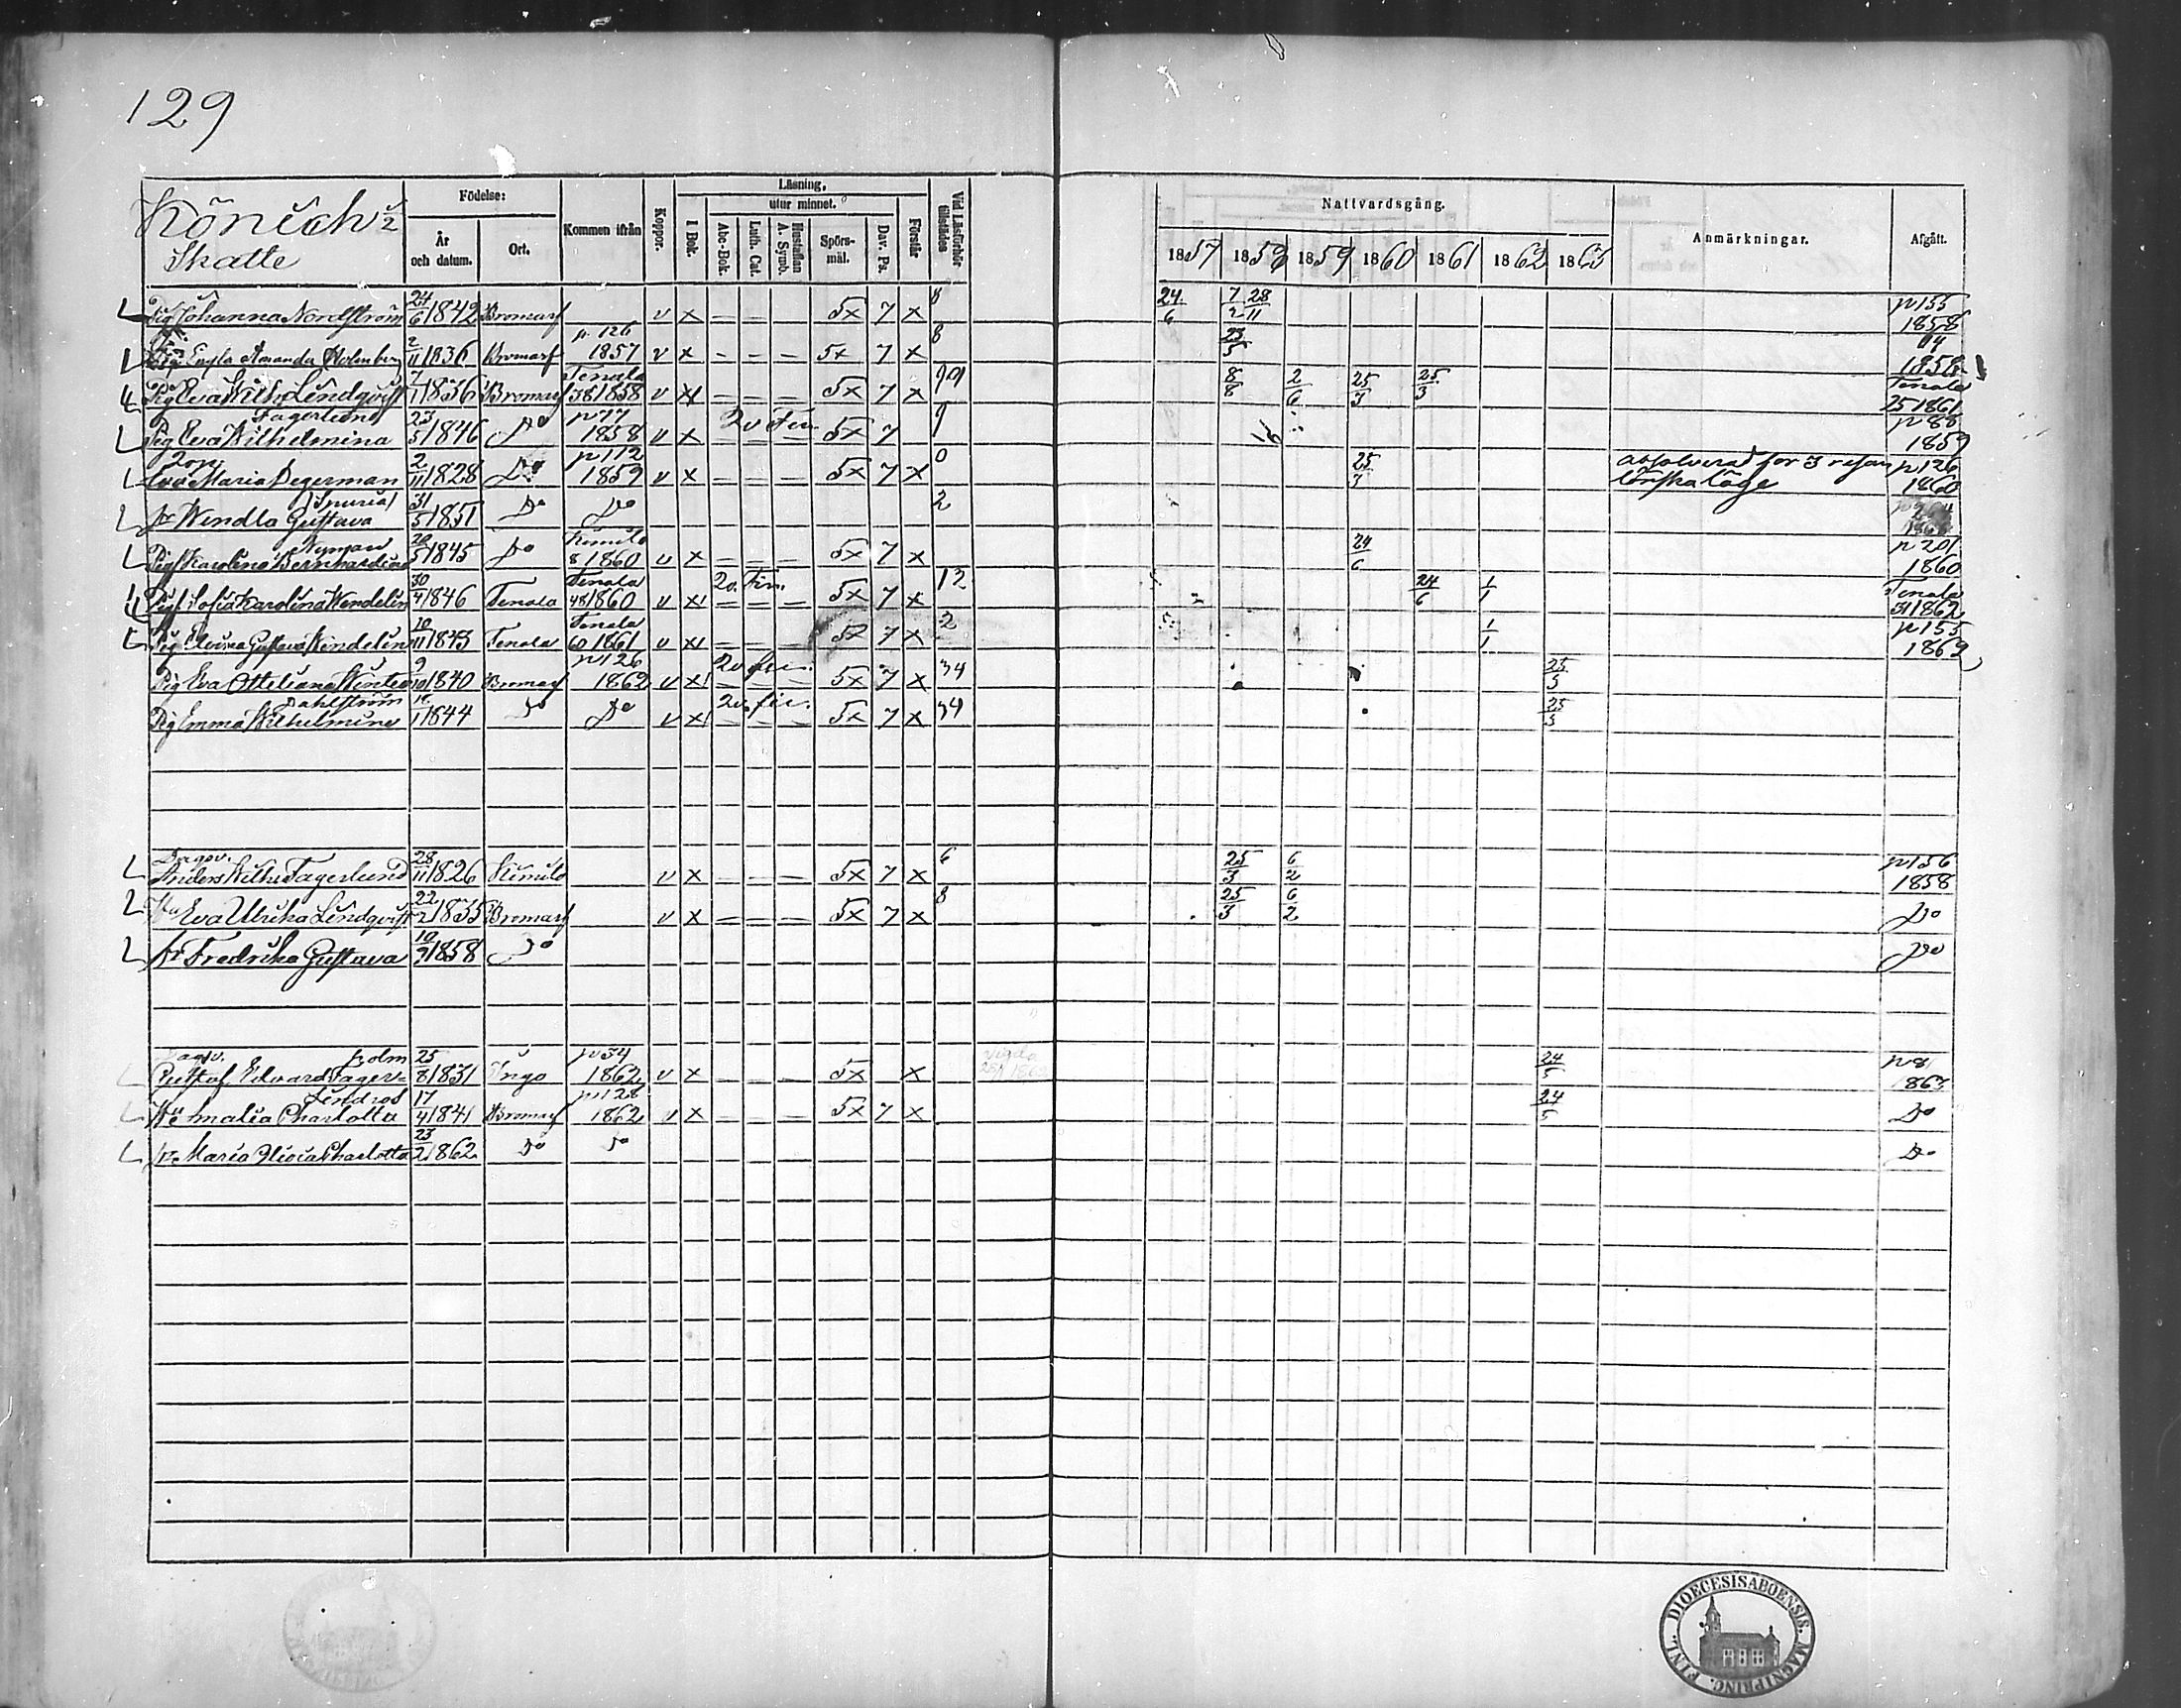 129
Skatte
Födelse:
År och datum.
Ort.
Kommen ifrån
Koppor.
Läsning,
I Bok.
utur minnet.
Abc-Bok.
Luth. Cat.
Hustaflan A. Symb.
Spörs-mål.
Dav. Ps.
Förstår
Vid Läsförhör tillstädes
Nattvardsgång.
1857 1858 1859 1860 1861 1862 1863
Anmärkningar.
Afgått.
Pig Johanna Nordström 24/6 1842 Bromarf v x — — — 5x 7 x 8 24/6 7/2 28/11 p155 1858
Engla Amanda Holmberg 2/11 1836 Bromarf p. 126 1857 v x - - - 5x 7 x 8 23/5 1858
Pig Eva Wilh. Lindqvist 1836 Bromarf Tenala 38 1858 v x — — — 5x 7 x 8/8 2/6 25/3 25/3 Tenala 25 1861
Fagerlund
Pig Eva Wilhelmina 23/5 1846 Do p77 1858 v x 5x 7 9 p88 1859
Eva Maria Degerman 2/11 1828 Do p112 1859 v x — — — 5x 7 x 0 25/3 absolverad för 3 resan p126 1860
Spuria
Wendla Gustava 31/5 1851 Do Do 2
Nyman
Karolina Bernhardina 20/5 1845 Do Kimito 8 1860 v x — — — 5x 7 x 24/6 p201 1860
Sofia Karolina Wendelin 30/4 1846 Tenala Tenala 48 1860 v x 5x 7 x 12 24/6 1/1 Tenala 31 1862
Pig Gustava Wendelin 10/11 1843 Tenala Tenala 60 1861 v x — — — 5x 7 x 2 1/1 p155 1862
Pig Eva Otteliana Winter 9/10 1840 Bromarf p126 1862 v x 5x 7 x 34 25/5
Dahlström
Pig Emma Wilhelmina 1844 Do Do v x 5x 7 x 34 25/5
Anders Wilh. Fagerlund 28/11 1826 Kimito v x — — — 5x 7 x 6 25/3 6/2 p156 1858
Eva Ulrika Lindqvist 22/2 1835 Bromarf v x — — — 5x 7 x 8 25/3 6/2 Do
Fredrika Gustava 10/9 1858 Do Do
holm
Gustaf Edvard Fager= 25/8 1831 Ingo p34 1862 v x — — — 5x x 24/5 p8
Lindros
Amalia Charlotta 17/4 1841 Bromarf p128 1862 v x — — — 5x 7 x 24/5 Do
Maria Olivia Charlotta 23/2 1862 Do Do Do
FINL. DIOECESIS ABOENSIS. MAGNI PRINC.